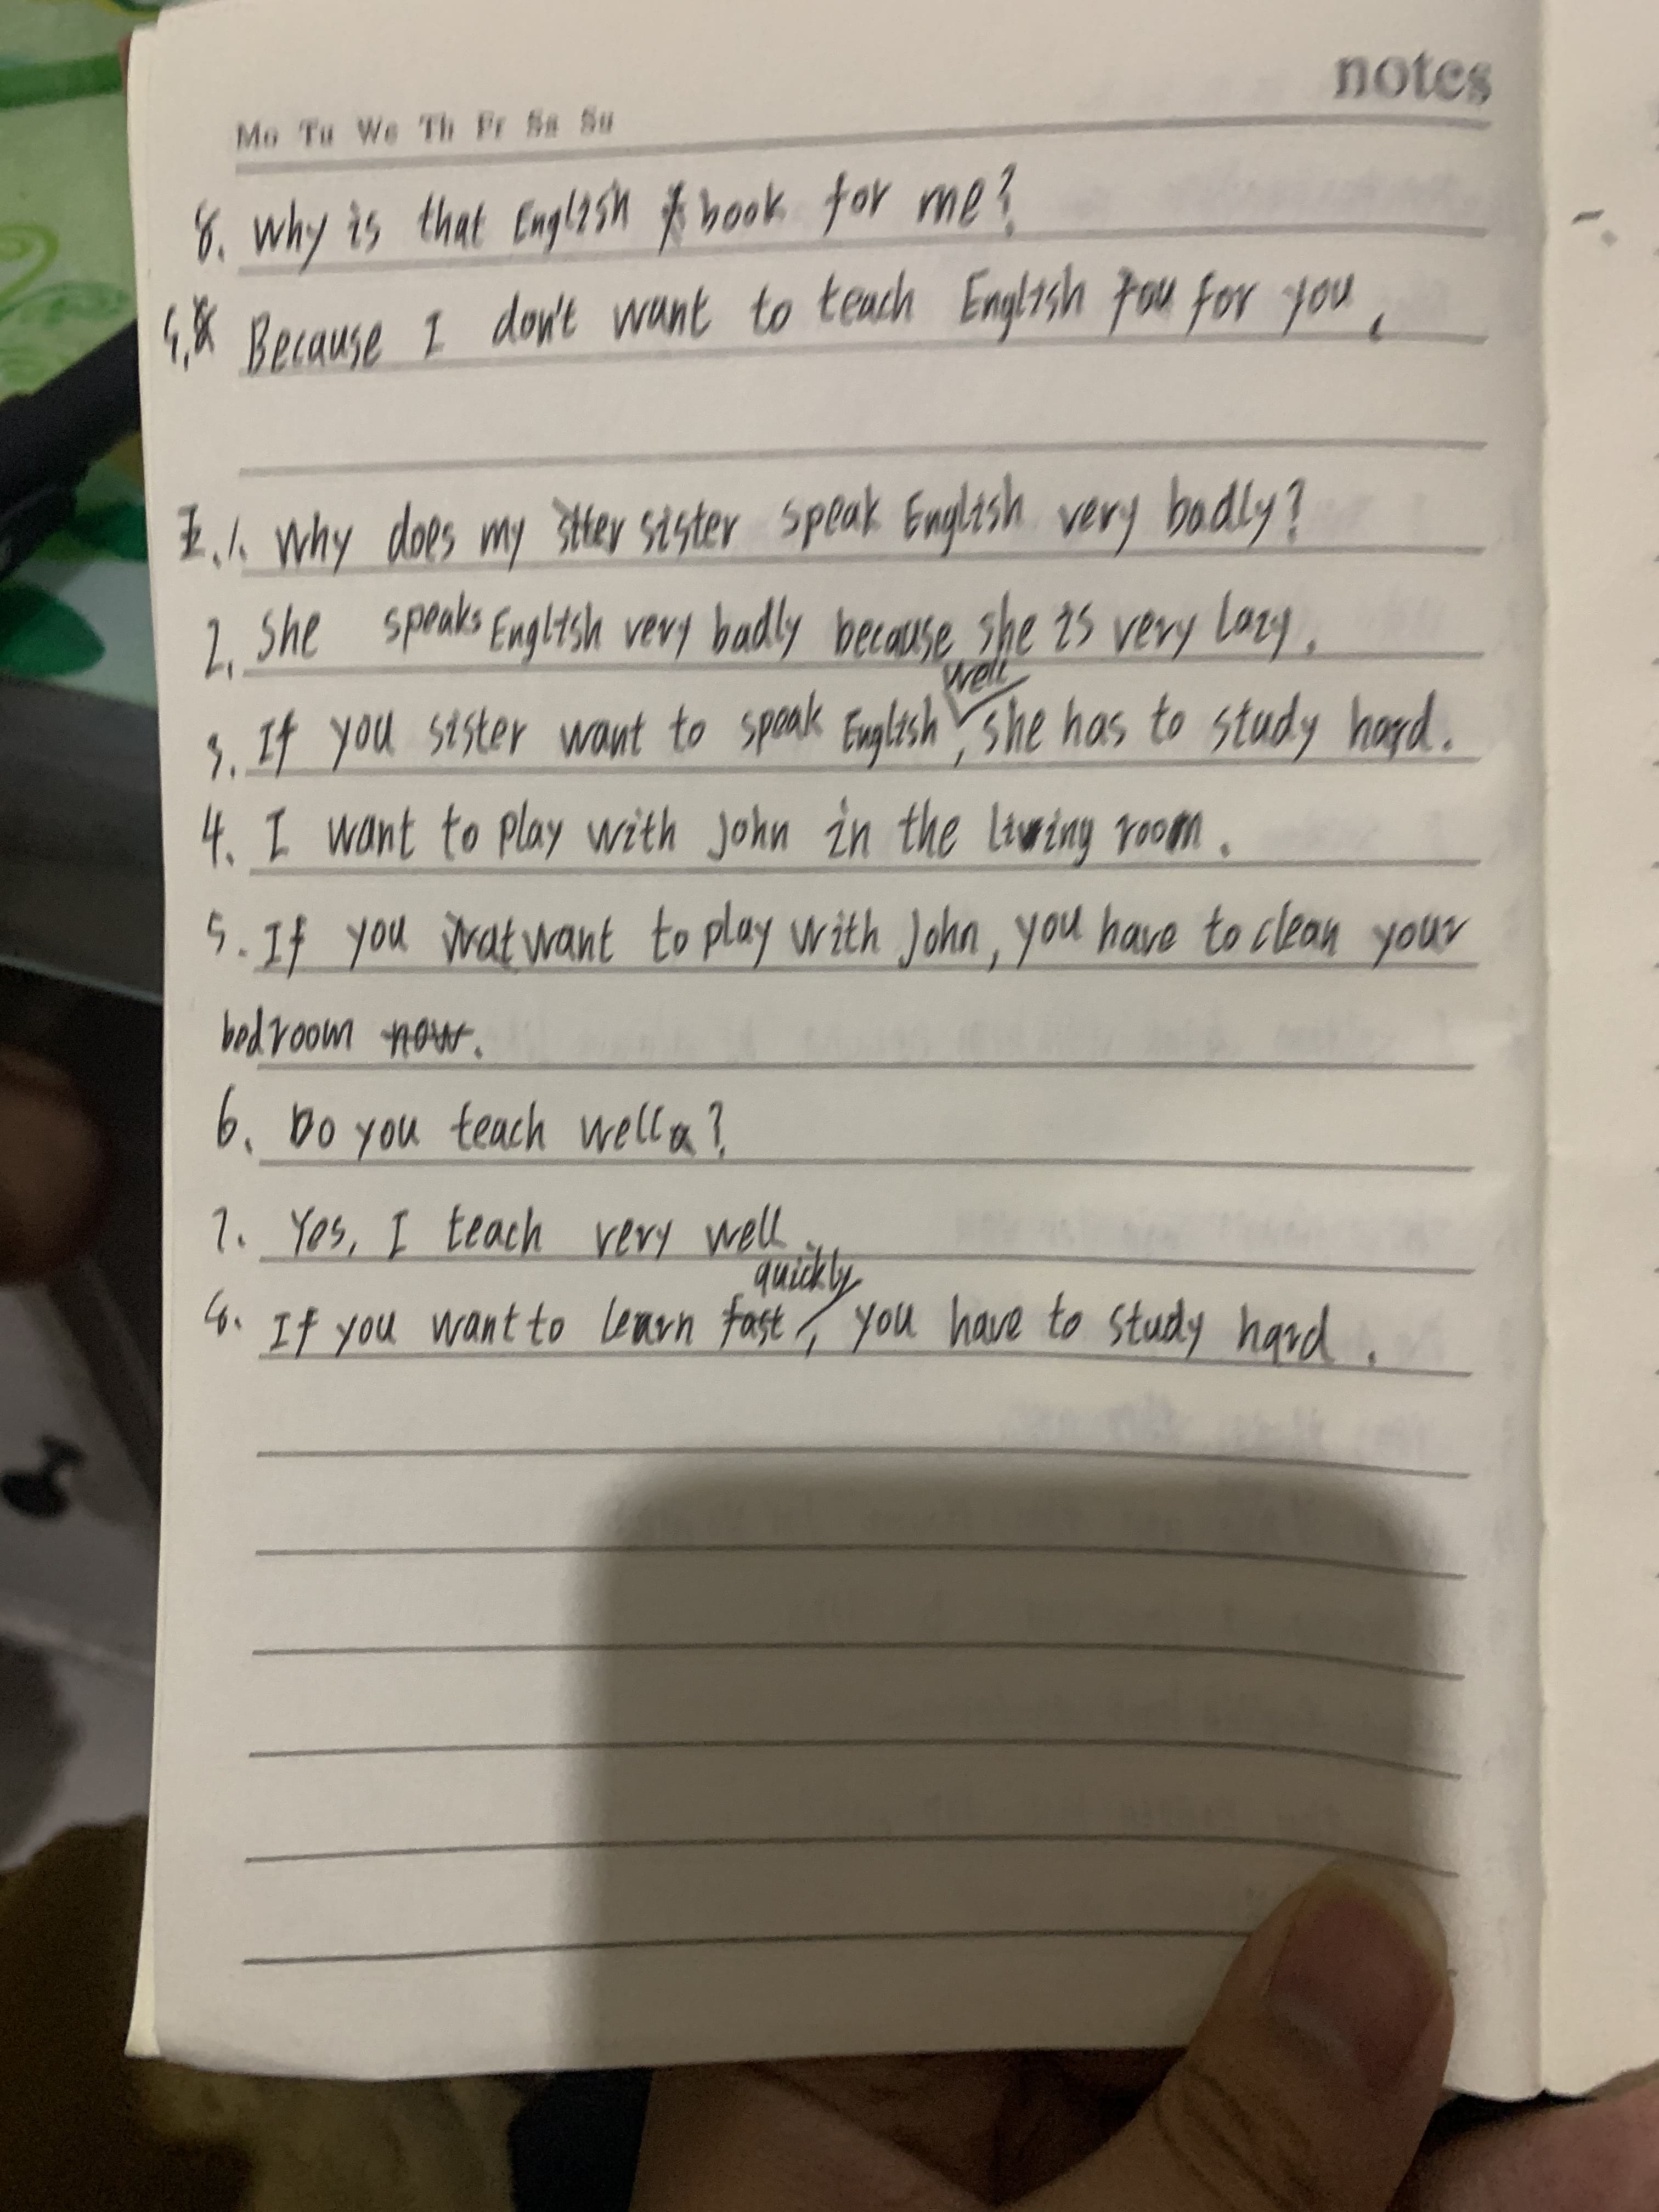 notes
Mo Tu We Th Fr Sa Su
8. Why is that English book for me?
9. Because I don't want to teach English for you.
1. Why does my sister speak English very badly?
2. She speaks English very badly because she is very lazy.
well
3. If you sister want to speak English, she has to study hard.
4. I want to play with John in the living room.
5. If you want to play with John, you have to clean your
bedroom now.
6. Do you teach well?
7. Yes, I teach very well.
quickly
8. If you want to learn fast, you have to study hard.